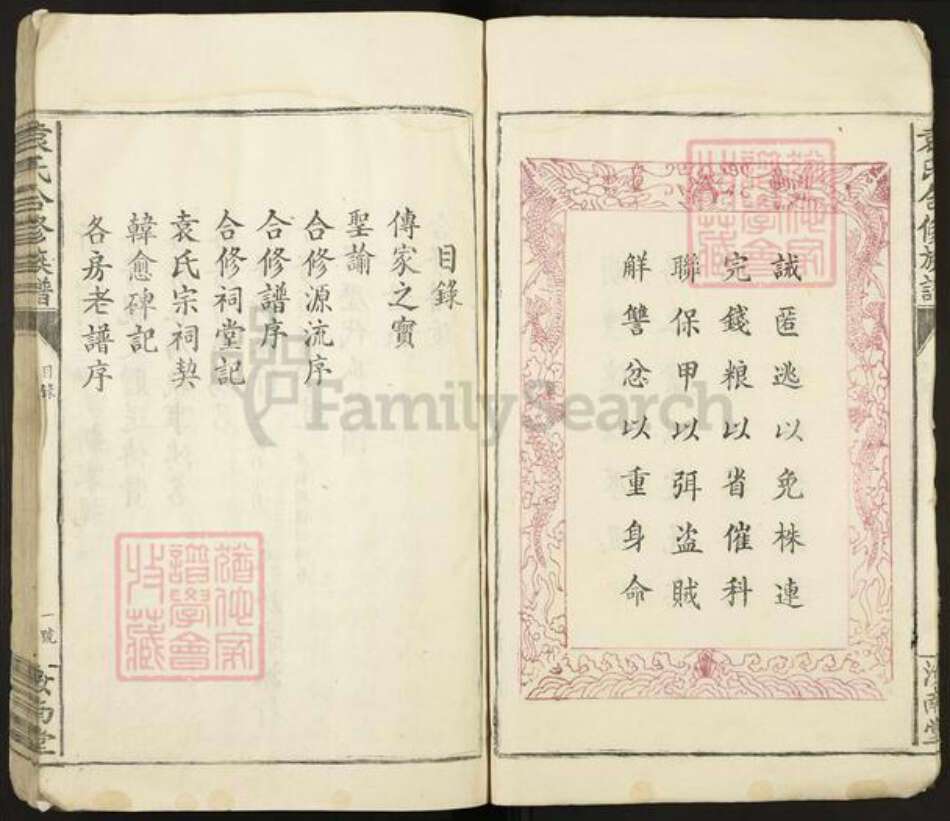 誡匿逃以免株連
完錢粮以省催科
聯保甲以弭盗賊
觧讐忿以重身命
袁氏合修族譜
汝南堂
目錄
傳家之寳
聖諭
合修源流序
合修譜序
合修祠堂記
袁氏宗祠契
韓愈碑記
各房老譜序
袁氏合修族譜
目錄
一號
汝南堂
譜學會
收藏
FamilySearch